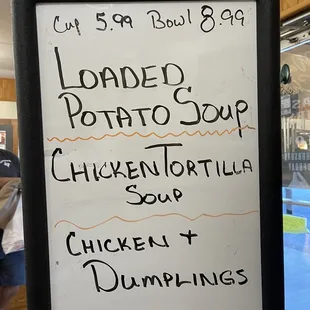 Cup 5.99 Bowl 8.99
LOADED
POTATO SOUP
CHICKEN TORTILLA
SOUP
CHICKEN +
DUMPLINGS